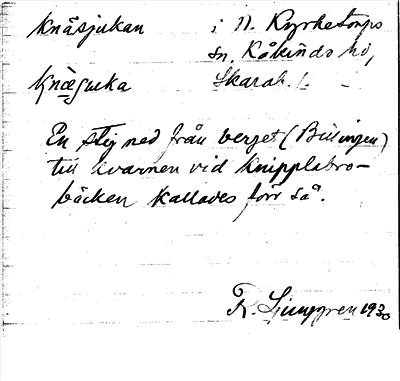 Knäsjukan i N. Kyrketorps
sn. Kåkinds hd,
Knæsuka Skarab. l.
En stig ned från berget (Billingen)
till kvarnen vid Knipplabro-
bäcken kallades förr så.
R. Ljunggren 1930